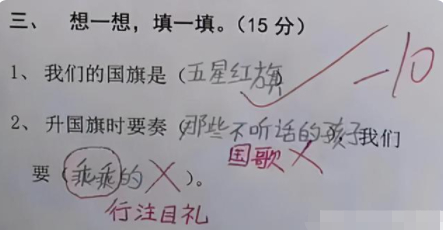 三、 想一想，填一填。（15 分）
1、我们的国旗是（五星红旗 -10
2、升国旗时要奏（那些不听话的孩子我们
国歌
要（乖乖的）。
行注目礼